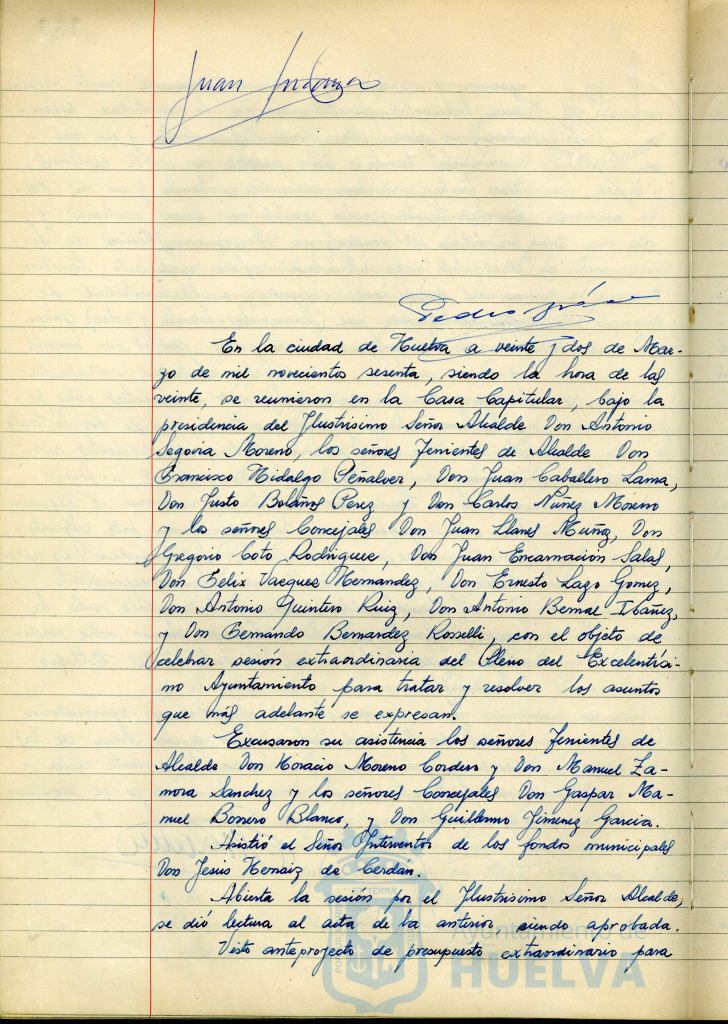 Juan
Pedro
En la ciudad de Huelva a veinte y dos de Mar-
zo de mil novecientos sesenta, siendo la hora de las
veinte, se reunieron en la Casa Capitular, bajo la
presidencia del Ilustrisimo Señor Alcalde Don Antonio
Segovia Moreno, los señores Tenientes de Alcalde Don
Francisco Hidalgo Peñalver, Don Juan Caballero Lama,
Don Justo Bolaños Perez y Don Carlos Nuñez Moreno
y los señores Concejales Don Juan Llanes Muñoz, Don
Gregorio Coto Rodriguez, Don Juan Encarnación Salas,
Don Felix Vazquez Hernandez, Don Ernesto Lazo Gomez,
Don Antonio Quintero Ruiz, Don Antonio Bernal Ibañez,
y Don Fernando Bernardez Rosselli, con el objeto de
celebrar sesión extraordinaria del Pleno del Excelentísi-
mo Ayuntamiento para tratar y resolver los asuntos
que más adelante se expresan.
Excusaron su asistencia los señores Tenientes de
Alcalde Don Horacio Moreno Cordero y Don Manuel Za-
mora Sanchez y los señores Concejales Don Gaspar Ma-
nuel Borrero Blanco, y Don Guillermo Jimenez Garcia.
Asistió el Señor Interventor de los fondos municipales
Don Jesus Hernaiz de Cerdán.
Abierta la sesión por el Ilustrisimo Señor Alcalde,
se dió lectura al acta de la anterior siendo aprobada.
Visto anteproyecto de presupuesto extraordinario para
Ayuntamiento de
HUELVA